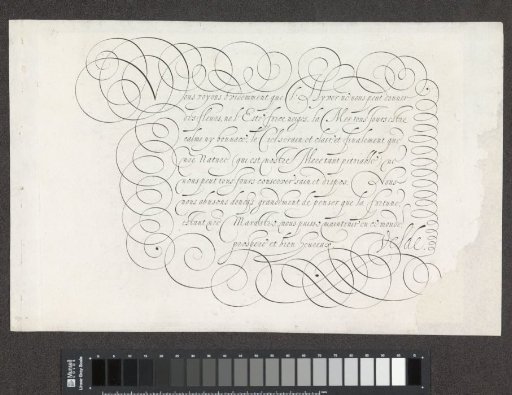 Vous voyons evidemment que l'Hyver ne nous peut donner
des fleurs, ne l'Esté froce neges, la Mer tous jours estre
calme ny bonnace, le Ciel serein et clair, et finalement que
nre Nature (qui est nostre Mere tant pitoiable) ne
nous peut tous jours conserver sain et dispos. Nous
nous abusons doncq grandement de penser que la fortune,
estant nre Marastre, nous puisse maintenir en ce monde
prospere et bien heureux.
Velde.